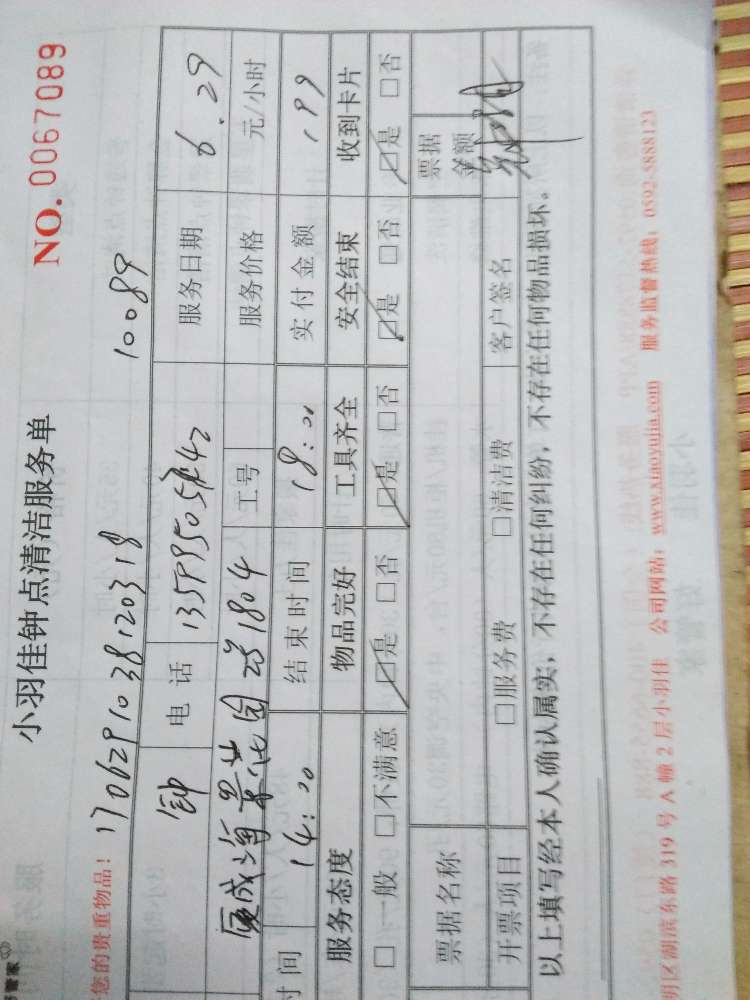 管家
NO. 0067089
小羽佳钟点清洁服务单
您的贵重物品! 1706291038120318 10089
钟 电话 服务日期 6.29
厦成海景花园 1804 工号 服务价格 元/小时
时间 14:00 结束时间 18:00 实付金额 199
服务态度 物品完好 工具齐全 安全结束 收到卡片
□一般 □不满意 □是 □否 □是 □否 □是 □否 □是 □否
票据名称 票据金额
开票项目 □服务费 □清洁费 客户签名
以上填写经本人确认属实,不存在任何纠纷,不存在任何物品损坏。
明区湖滨东路 319 号 A 幢 2 层小羽佳 公司网站:www.xiaoyujia.com 服务监督热线:0592-5888123